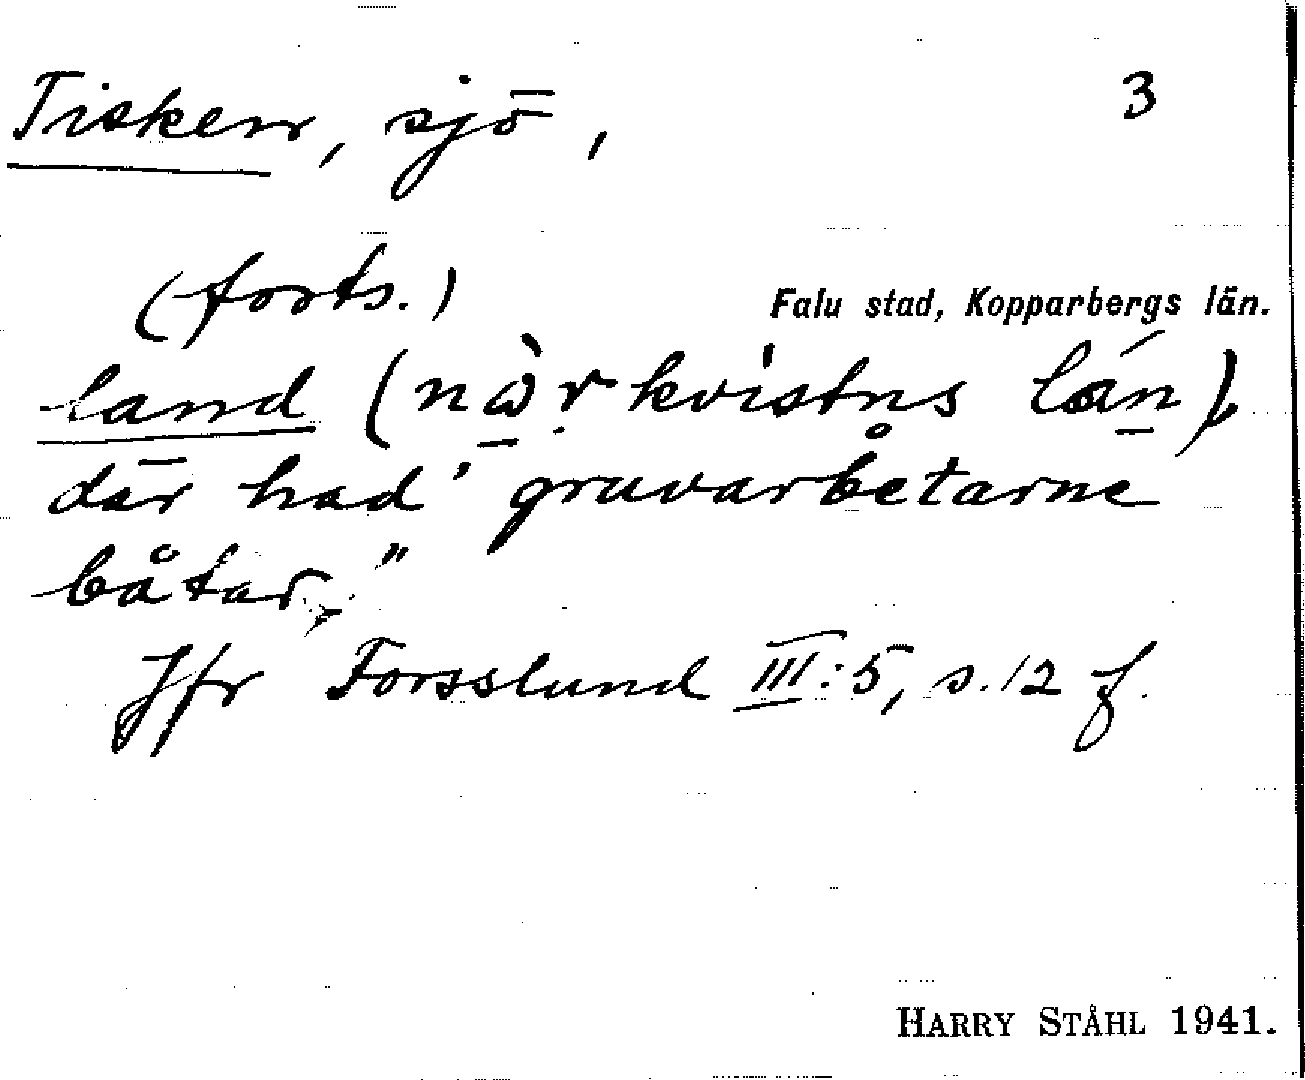 Tisken, sjö, 3
(forts.)
Falu stad, Kopparbergs län.
land (nὼ̱ṛkvistns lán̲),
där had' gruvarbetarne
båtar."
Jfr Forsslund III:5, s. 12 f.
HARRY STÅHL 1941.